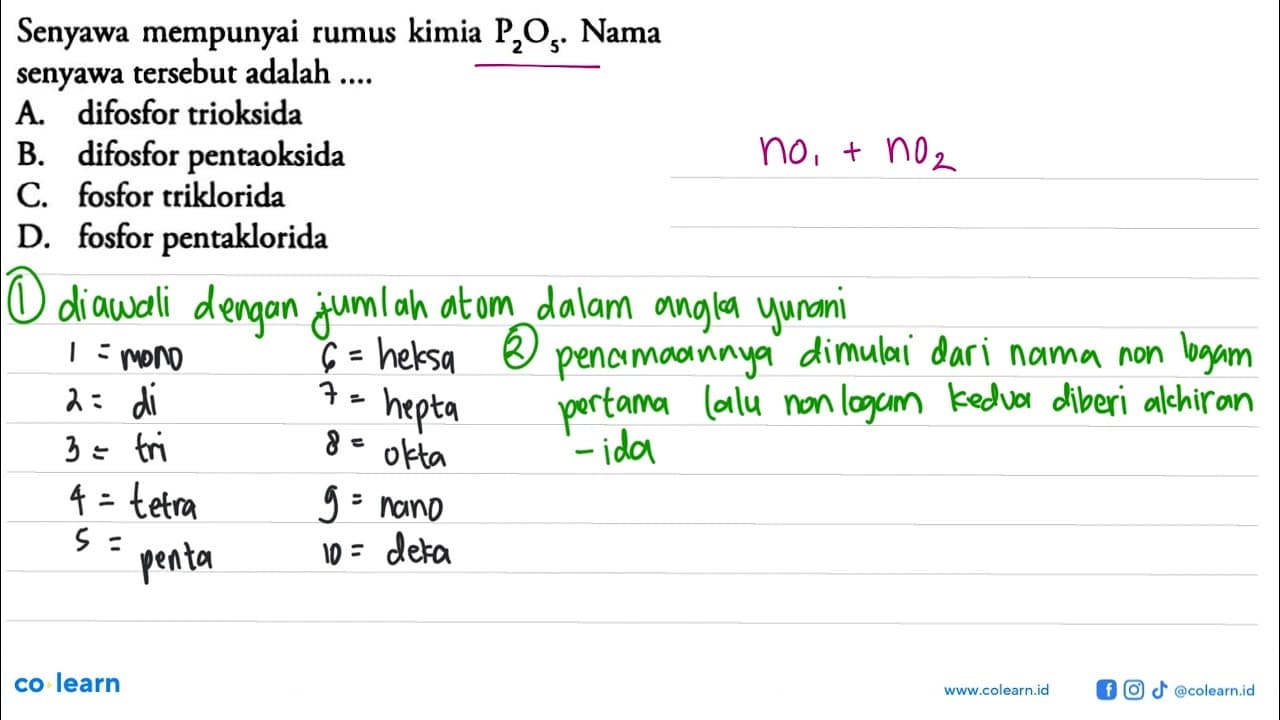 Senyawa mempunyai rumus kimia P₂O₅. Nama
senyawa tersebut adalah ....
A. difosfor trioksida
B. difosfor pentaoksida
C. fosfor triklorida
D. fosfor pentaklorida
no₁ + no₂
① diawali dengan jumlah atom dalam angka yunani
1 = mono
2 = di
3 = tri
4 = tetra
5 = penta
6 = heksa
7 = hepta
8 = okta
9 = nano
10 = deka
② penamaannya dimulai dari nama non logam
pertama lalu nonlogam kedua diberi akhiran
- ida
co learn
www.colearn.id
@colearn.id